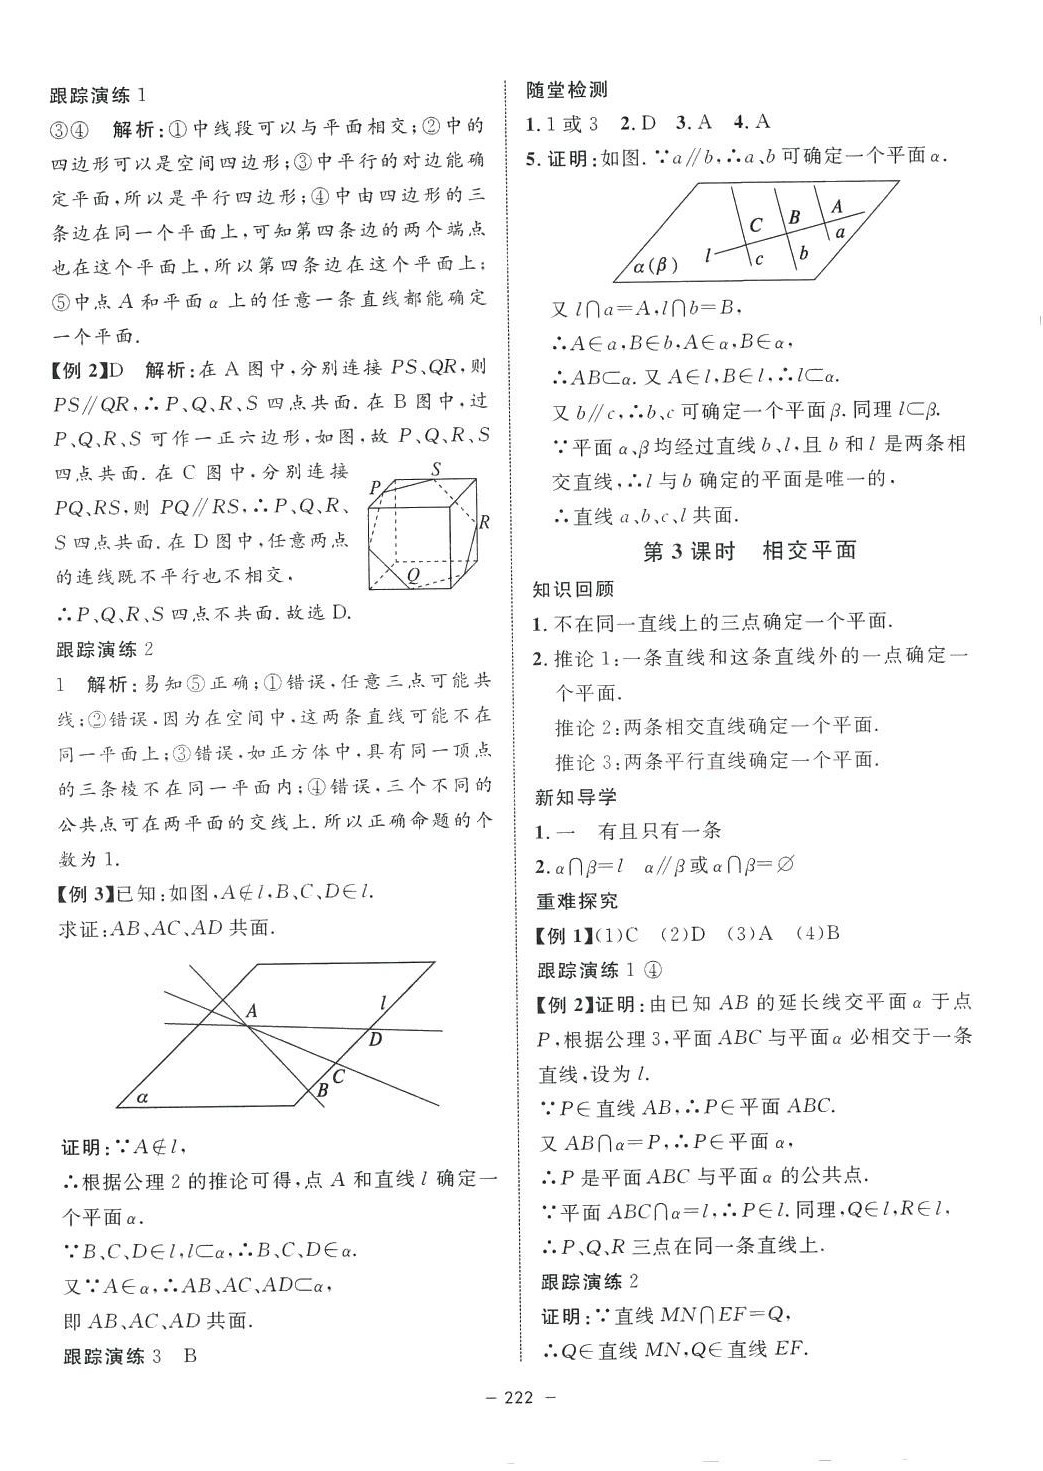 跟踪演练 1
③④ 解析:①中线段可以与平面相交;②中的
四边形可以是空间四边形;③中平行的对边能确
定平面,所以是平行四边形;④中由四边形的三
条边在同一个平面上,可知第四条边的两个端点
也在这个平面上,所以第四条边在这个平面上;
⑤中点 A 和平面 α 上的任意一条直线都能确定
一个平面.
【例 2】D 解析:在 A 图中,分别连接 PS、QR,则
PS∥QR,∴P、Q、R、S 四点共面.在 B 图中,过
P、Q、R、S 可作一正六边形,如图,故 P、Q、R、S
四点共面.在 C 图中,分别连接
PQ、RS,则 PQ∥RS,∴P、Q、R、
S 四点共面.在 D 图中,任意两点
的连线既不平行也不相交,
∴P、Q、R、S 四点不共面.故选 D.
S
P
R
Q
跟踪演练 2
1 解析:易知⑤正确;①错误,任意三点可能共
线;②错误,因为在空间中,这两条直线可能不在
同一平面上;③错误,如正方体中,具有同一顶点
的三条棱不在同一平面内;④错误,三个不同的
公共点可在两平面的交线上.所以正确命题的个
数为 1.
【例 3】已知:如图,A∉l,B、C、D∈l.
求证:AB、AC、AD 共面.
A
l
D
C
B
α
证明:∵A∉l,
∴根据公理 2 的推论可得,点 A 和直线 l 确定一
个平面 α.
∵B、C、D∈l,l⊂α,∴B、C、D∈α.
又∵A∈α,∴AB、AC、AD⊂α,
即 AB、AC、AD 共面.
跟踪演练 3 B
随堂检测
1. 1 或 3 2. D 3. A 4. A
5. 证明:如图.∵a∥b,∴a、b 可确定一个平面 α.
A
B
C
a
l
c
b
α(β)
又 l∩a=A,l∩b=B,
∴A∈a,B∈b,A∈α,B∈α,
∴AB⊂α.又 A∈l,B∈l,∴l⊂α.
又 b∥c,∴b、c 可确定一个平面 β.同理 l⊂β.
∵平面 α、β均经过直线 b、l,且 b 和 l 是两条相
交直线,∴l 与 b 确定的平面是唯一的,
∴直线 a、b、c、l 共面.
第 3 课时 相交平面
知识回顾
1. 不在同一直线上的三点确定一个平面.
2. 推论 1:一条直线和这条直线外的一点确定一
个平面.
推论 2:两条相交直线确定一个平面.
推论 3:两条平行直线确定一个平面.
新知导学
1. 一 有且只有一条
2. α∩β=l α∥β或 α∩β=∅
重难探究
【例 1】(1)C (2)D (3)A (4)B
跟踪演练 1 ④
【例 2】证明:由已知 AB 的延长线交平面 α 于点
P,根据公理 3,平面 ABC 与平面 α 必相交于一条
直线,设为 l.
∵P∈直线 AB,∴P∈平面 ABC.
又 AB∩α=P,∴P∈平面 α,
∴P 是平面 ABC 与平面 α 的公共点.
∵平面 ABC∩α=l,∴P∈l.同理,Q∈l,R∈l,
∴P、Q、R 三点在同一条直线上.
跟踪演练 2
证明:∵直线 MN∩EF=Q,
∴Q∈直线 MN,Q∈直线 EF.
– 222 –